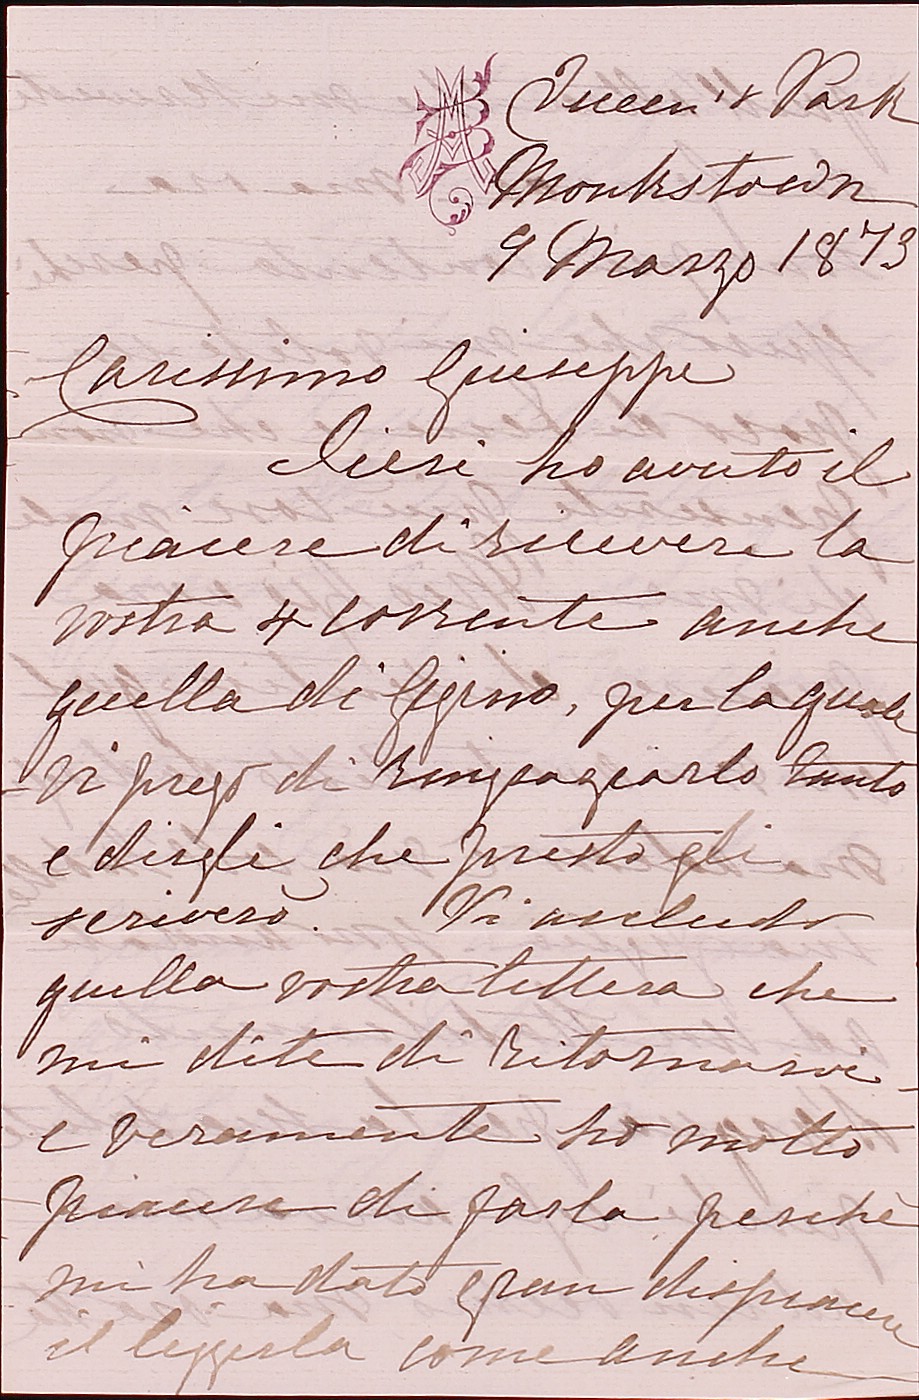 Queen's Park
Monkstown
9 Marzo 1873
Carissimo Giuseppe
Iieri ho avuto il
piacere di ricevere la
vostra 4 corrente anche
quella di Gigino, per la quale
vi prego di ringragiarlo tanto
e dirgli che presto gli
scriverò. Vi accludo
quella vostra lettera che
mi dite di ritornarvi
e veramente ho molto
piacere di farlo perchè
mi ha dato gran dispiacere
il leggerla come anche